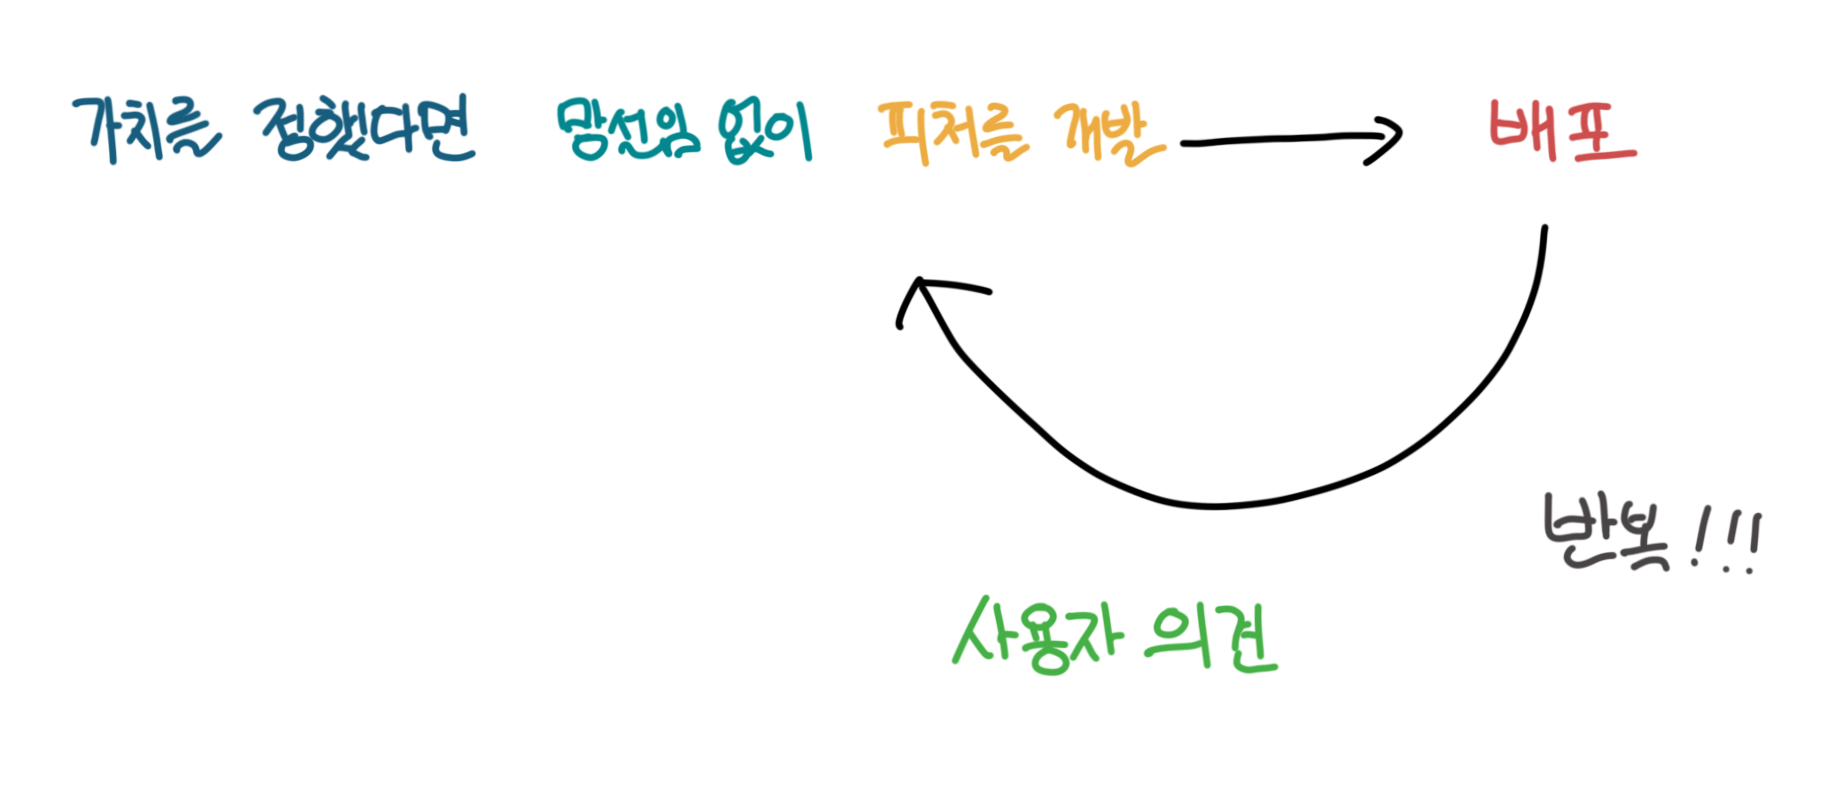 가치를 정했다면 망선임 없이 피처를 개발 배포
반복!!!
사용자 의견